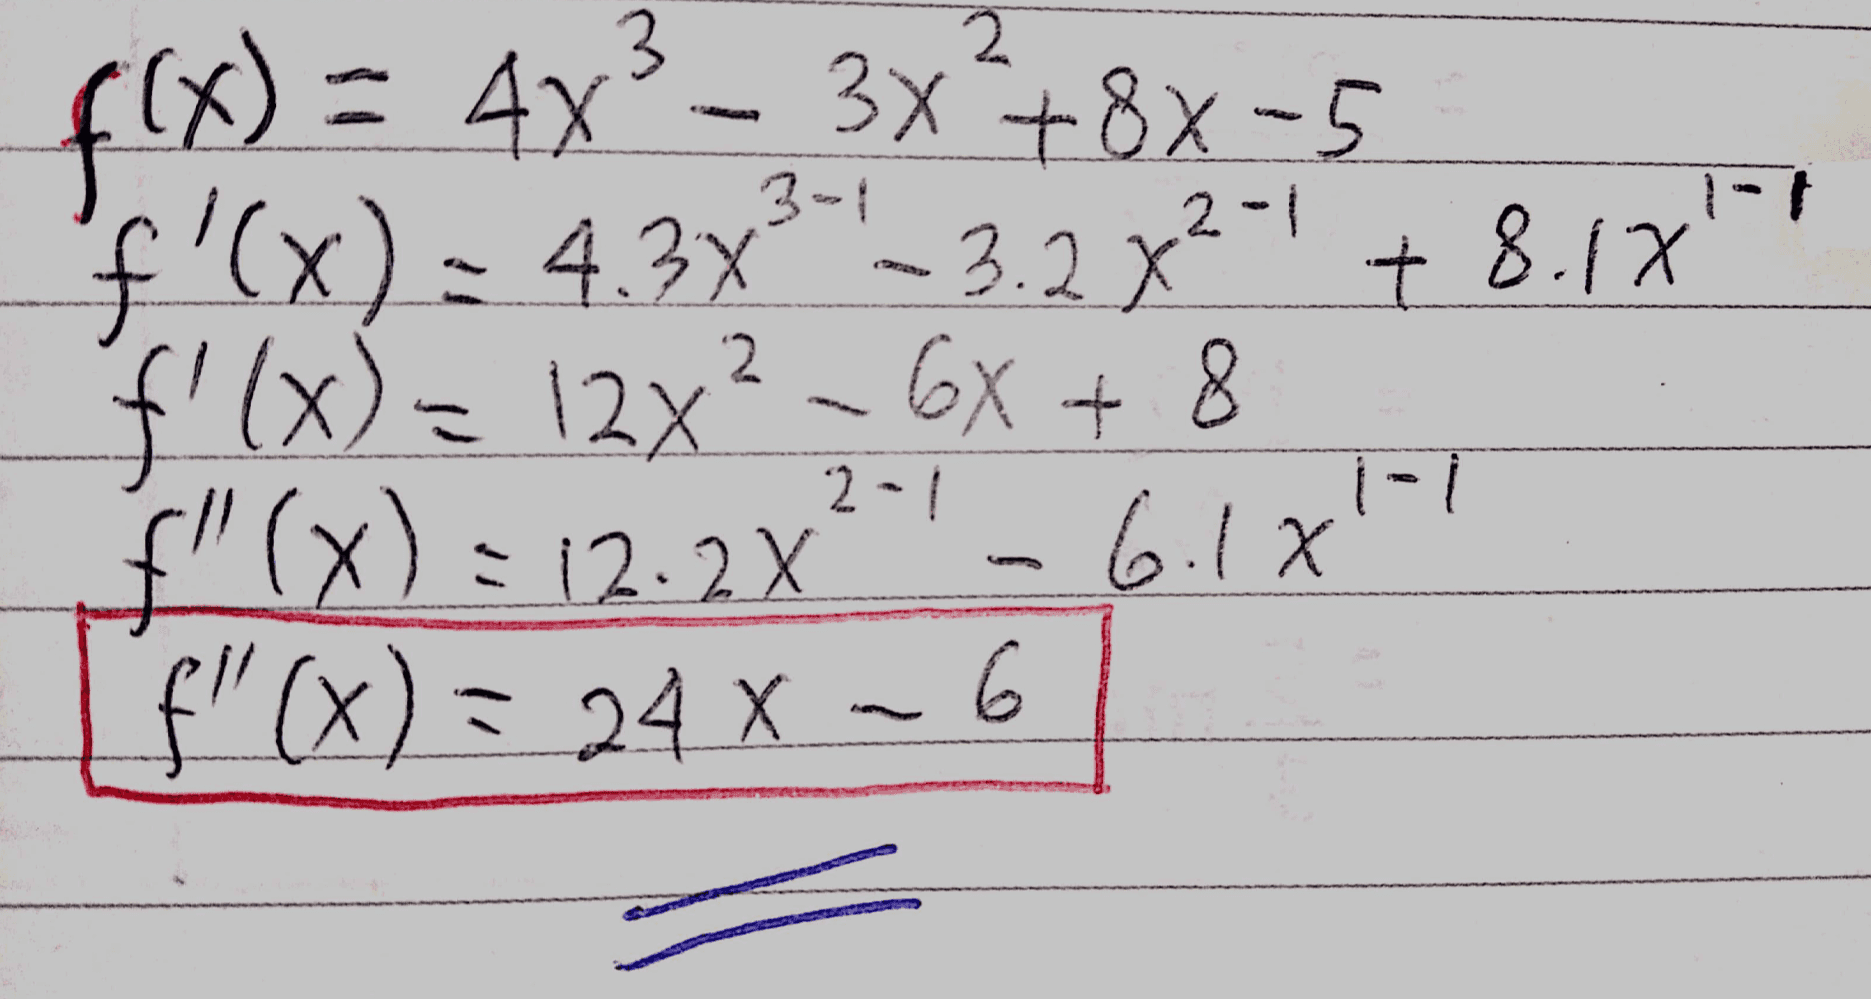 f(x) = 4x³ - 3x² + 8x - 5
f'(x) = 4.3x³⁻¹ - 3.2x²⁻¹ + 8.1x¹⁻¹
f'(x) = 12x² - 6x + 8
f''(x) = 12.2x²⁻¹ - 6.1x¹⁻¹
f''(x) = 24x - 6